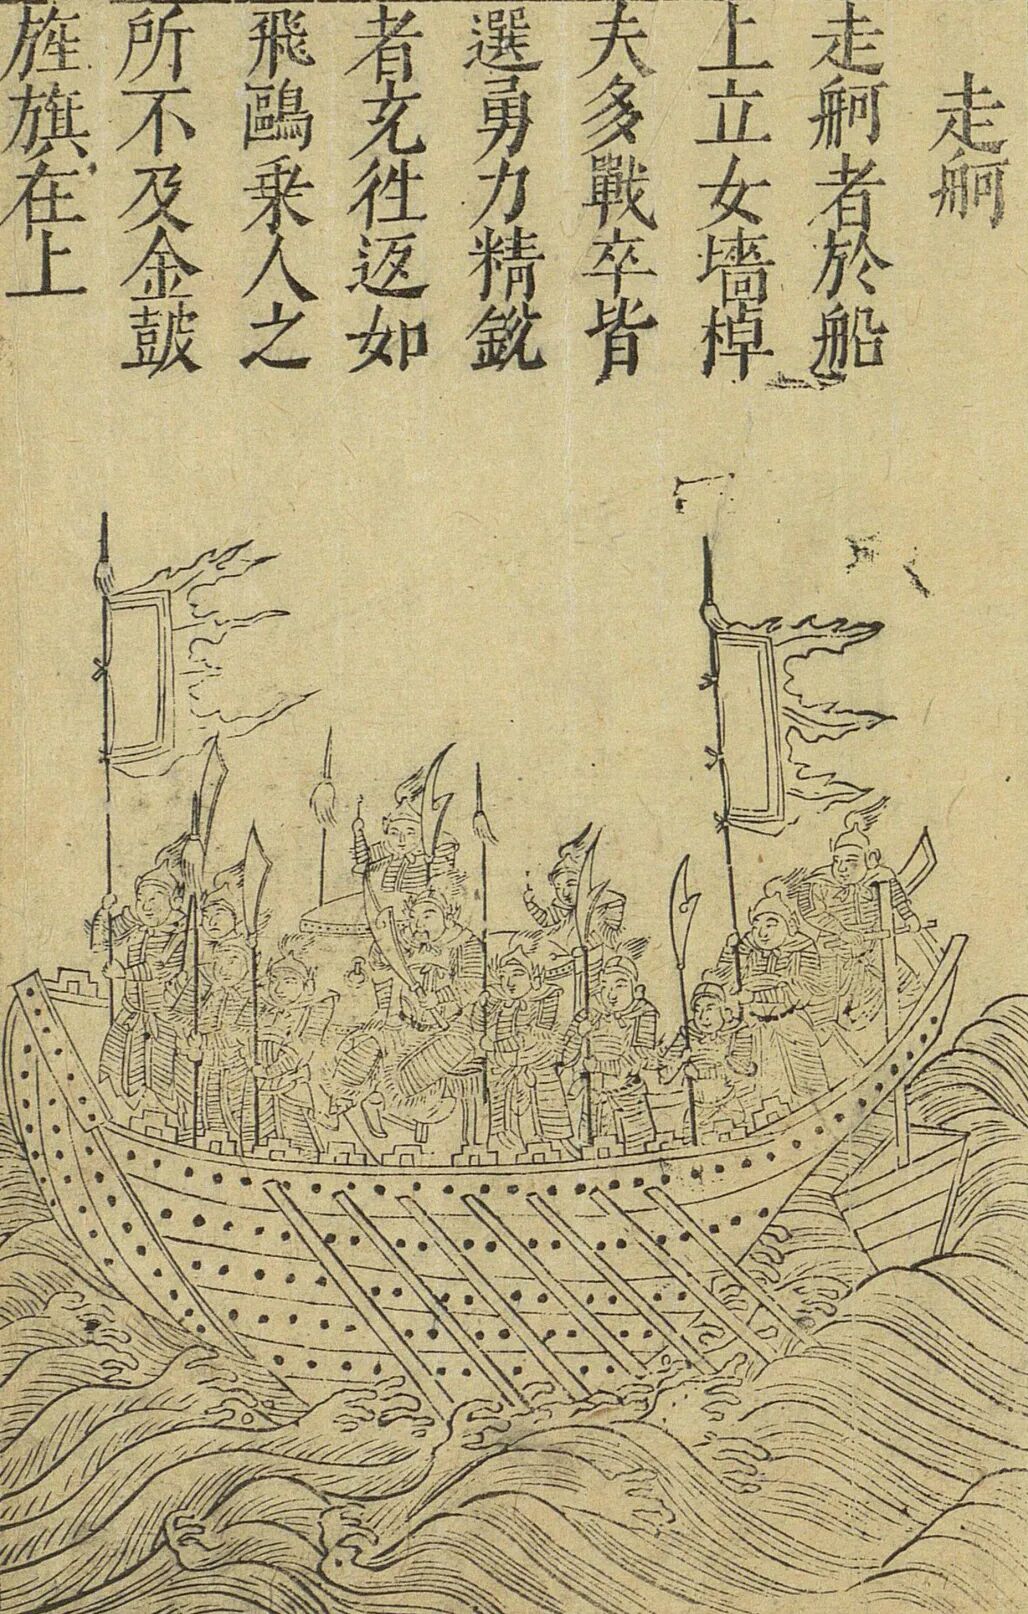 走舸
走舸者於船
上立女墻棹
夫多戰卒皆
選勇力精銳
者充徃返如
飛鷗乗人之
所不及金鼓
旌旗在上